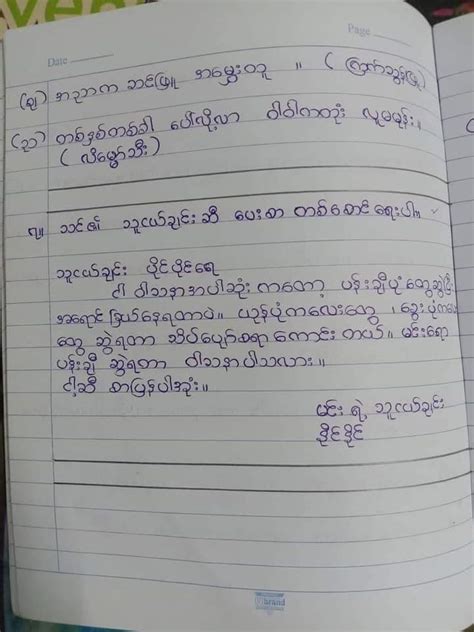 Page
Date
(ဈ) အညာက ဆင်ဖြူ အမွှေးတူ ။ ( ကြက်သွန်ဖြူ )
(ည) တစ်နှစ်တစ်ခါ ပေါ်လို့လာ ဝါဝါကတုံး လူမမုန်း။
( လိမ္မော်သီး )
၇။ သင်၏ သူငယ်ချင်းဆီ ပေးစာ တစ်စောင်ရေးပါ။
သူငယ်ချင်း ပိုင်ပိုင်ရေ
ငါ ဝါသနာအပါဆုံး ကတော့ ပန်းချီပုံတွေဆွဲပြီး
အရောင်ခြယ်နေရတာပဲ။ ယုန်ပုံကလေးတွေ ၊ ခွေးပုံကလေး
တွေ ဆွဲရတာ သိပ်ပျော်စရာ ကောင်း တယ်။ မင်းရော
ပန်းချီ ဆွဲရတာ ဝါသနာပါသလား။
ငါ့ဆီ စာပြန်ပါအုံး။
မင်း ရဲ့ သူငယ်ချင်း
ဒိုင်ဒိုင်
brand